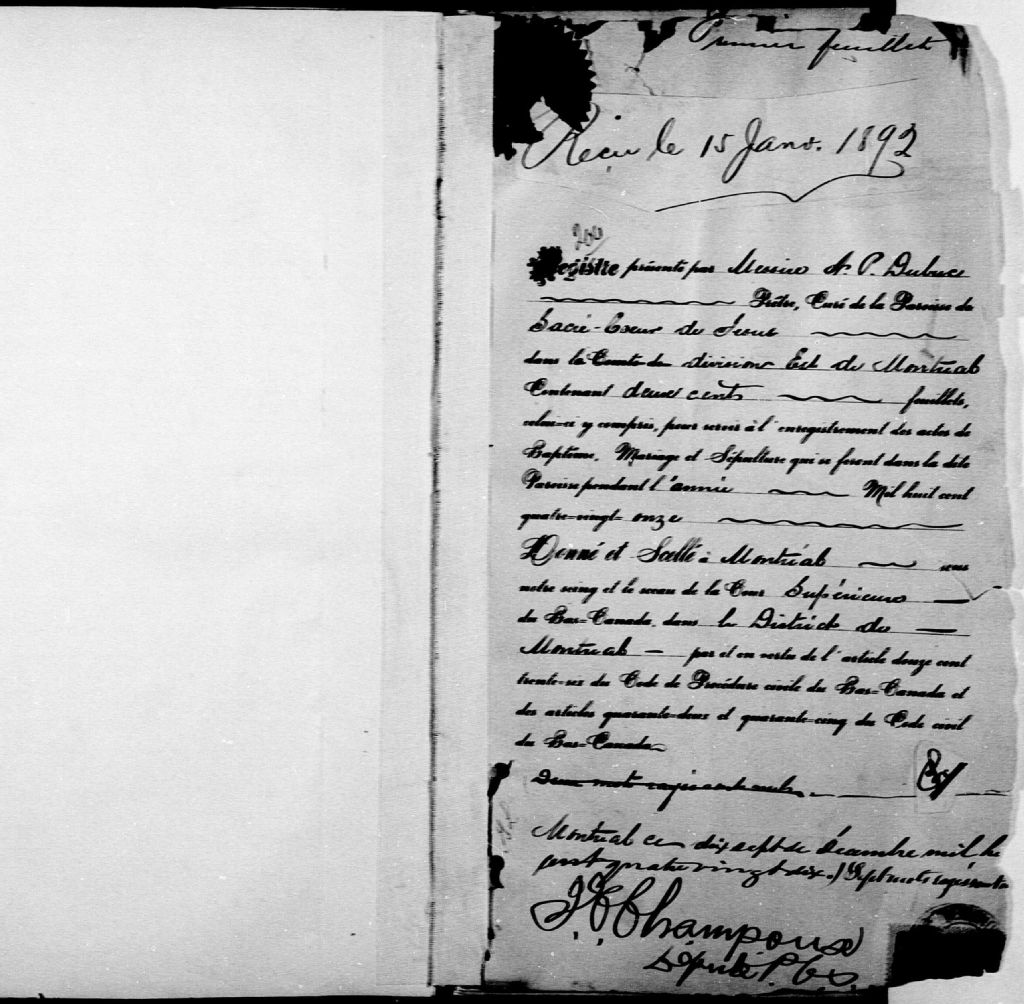 Premier feuillet
Reçu le 15 Janv. 1892
200
Registre présenté par Messire A. P. Dubuc
Prêtre, Curé de la Paroisse du
Sacré-Coeur de Jésus
dans la Comté de division Est de Montréal
Contenant deux cents feuillets,
celui-ci y compris, pour servir à l'enregistrement des actes de
Baptême, Mariage et Sépulture qui se feront dans la dite
Paroisse pendant l'année Mil huit cent
quatre-vingt-onze
Donné et Scellé à Montréal sous
notre seing et le sceau de la Cour Supérieure
du Bas-Canada, dans le District de
Montréal — par et en vertu de l'article douze cent
trente-six du Code de Procédure civile du Bas-Canada et
des articles quarante-deux et quarante-cinq du Code civil
du Bas-Canada
Montréal ce dix sept de décembre mil hu
cent quatre vingt dix.
J. E. Champoux
Député P. C. S.